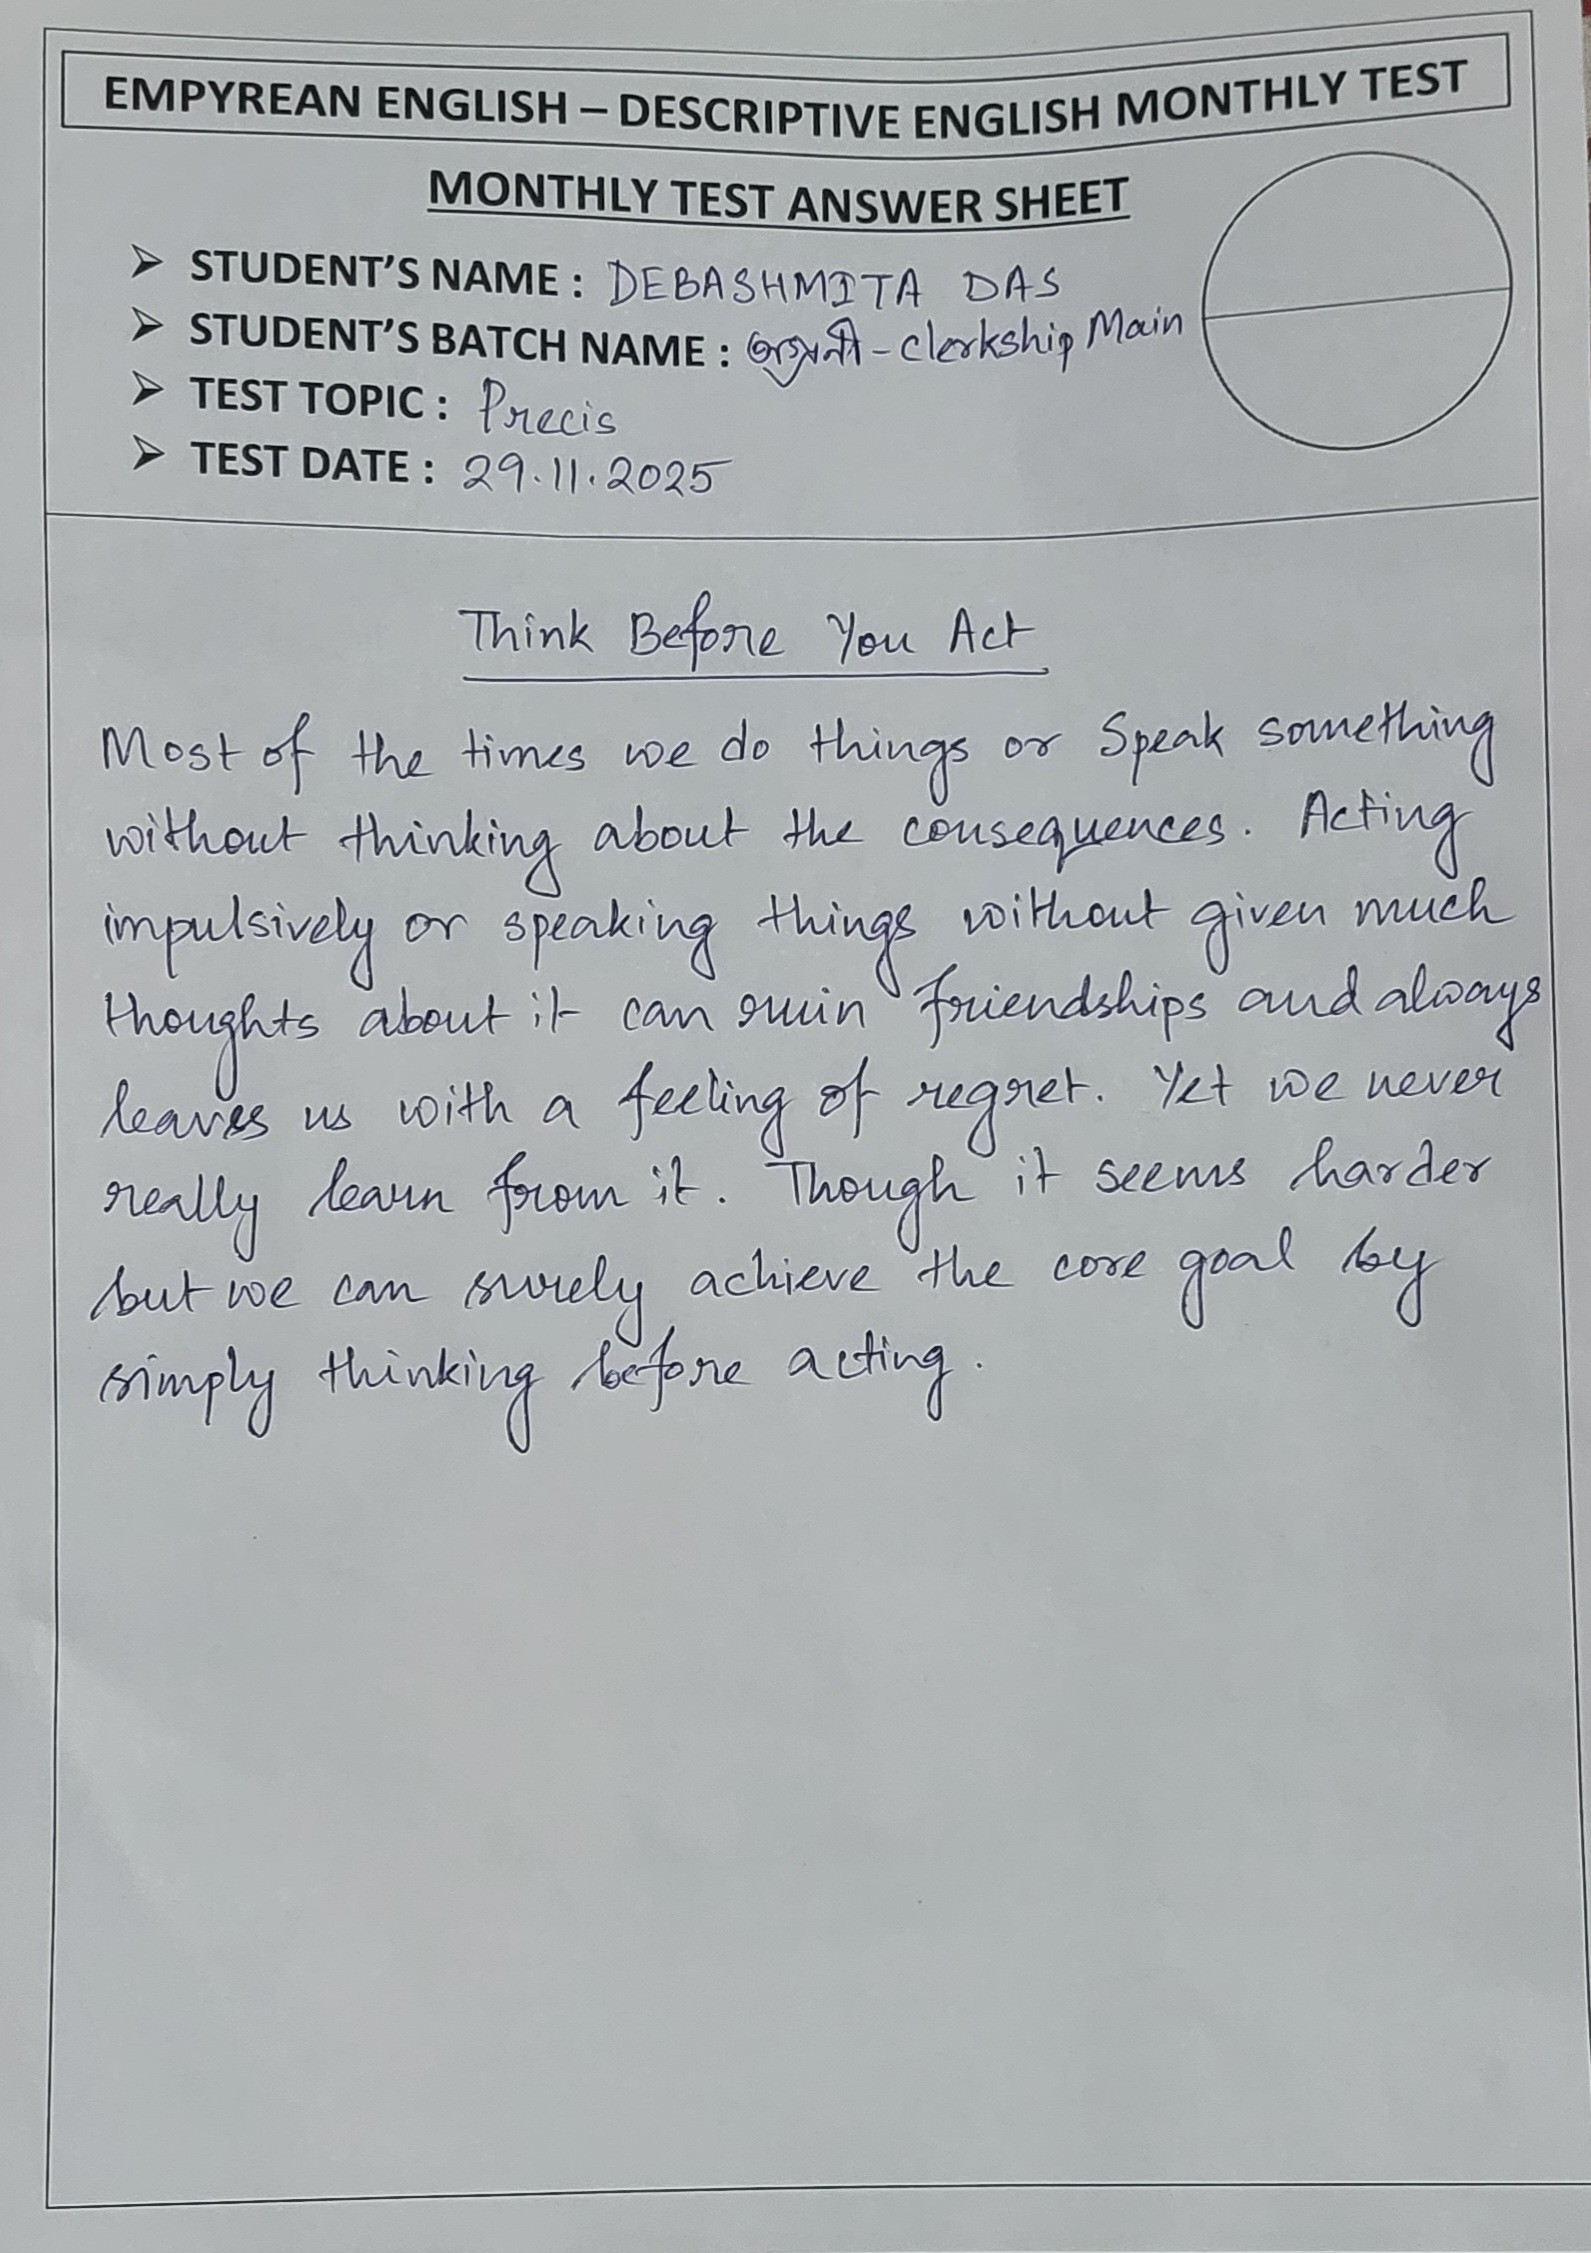 EMPYREAN ENGLISH – DESCRIPTIVE ENGLISH MONTHLY TEST
MONTHLY TEST ANSWER SHEET
➤ STUDENT'S NAME : DEBASHMITA DAS
➤ STUDENT'S BATCH NAME : - Clerkship Main
➤ TEST TOPIC : Precis
➤ TEST DATE : 29.11.2025
Think Before You Act
Most of the times we do things or Speak something
without thinking about the consequences. Acting
impulsively or speaking things without given much
thoughts about it can ruin friendships and always
leaves us with a feeling of regret. Yet we never
really learn from it. Though it seems harder
but we can surely achieve the core goal by
simply thinking before acting.